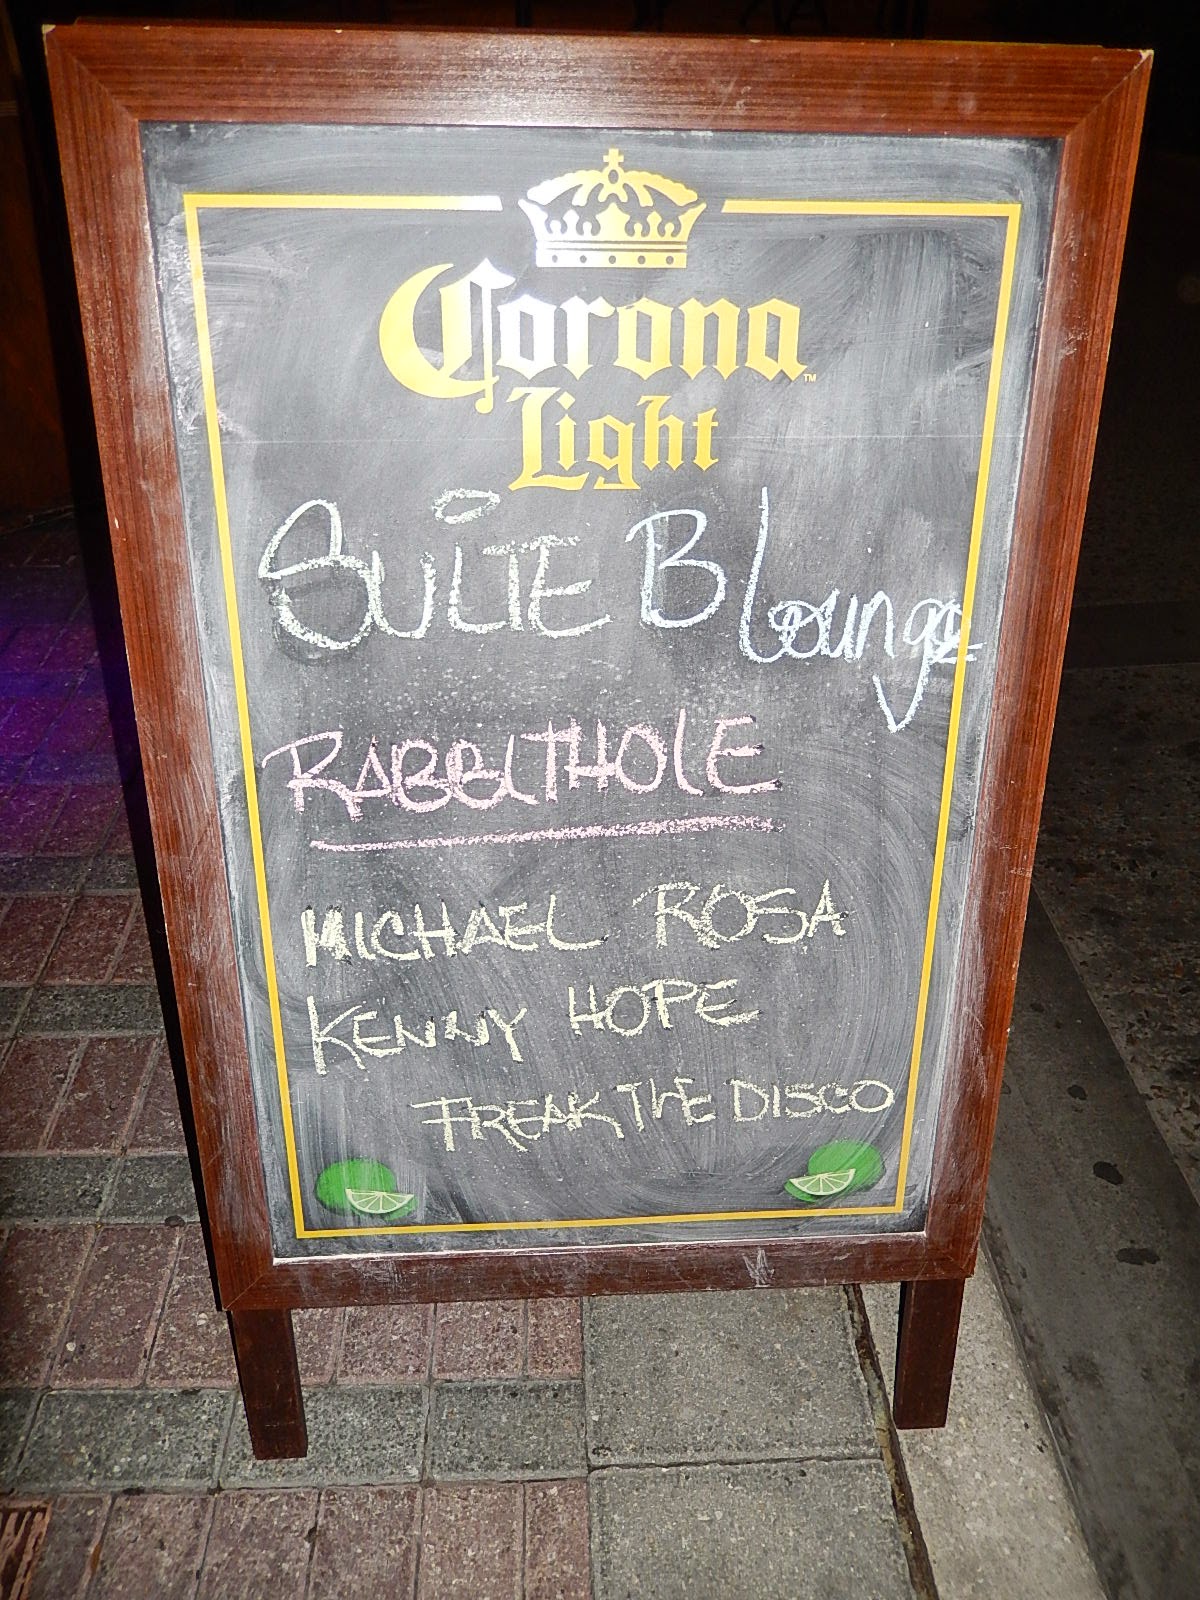 Corona
Light
SUITE B Lounge
RABBITHOLE
MICHAEL ROSA
KENNY HOPE
FREAK THE DISCO